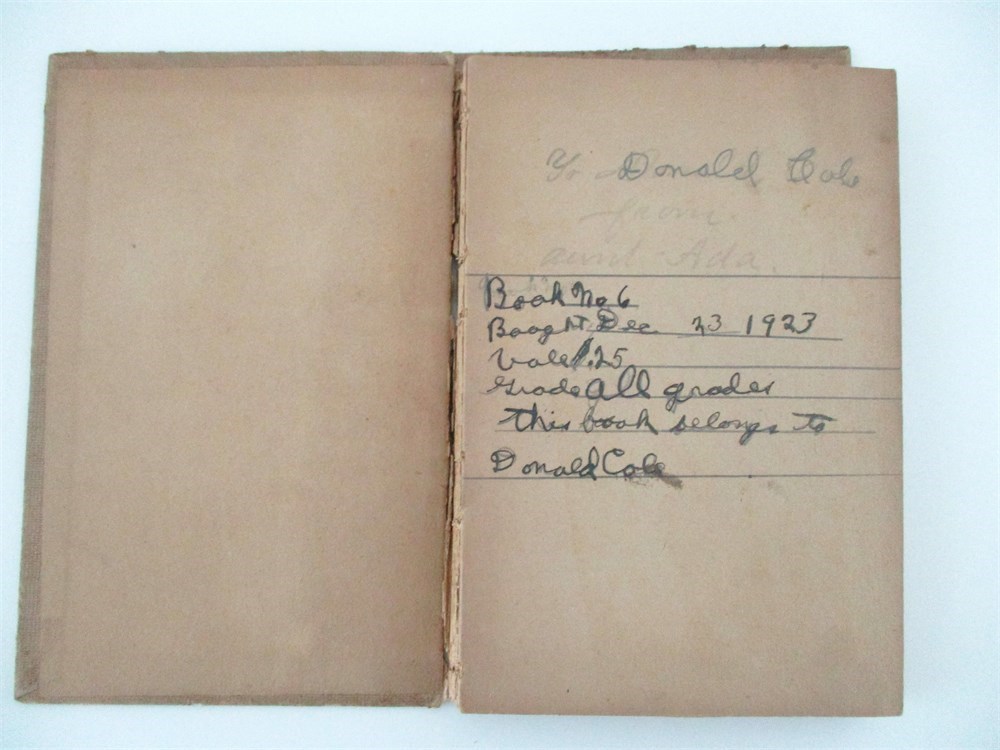 To Donald Cole
from
aunt Ada.
Book No 6
Bought Dec. 23 1923
Vale 1.25
Grade all grades
this book belongs to
Donald Cole